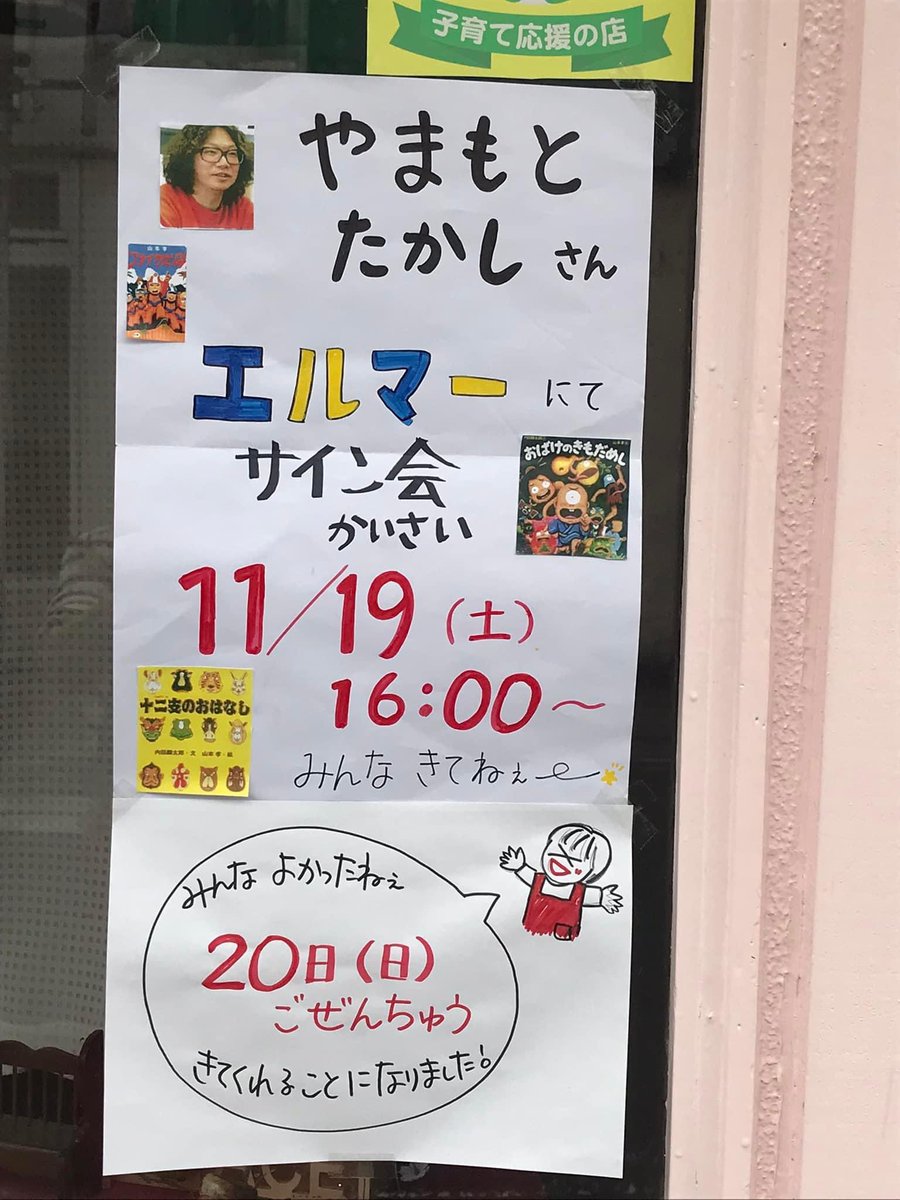 子育て応援の店
やまもと
たかし さん
山本 孝
エルマー にて
サイン会
かいさい
おばけのきもだめし
11/19 (土)
16:00〜
十二支のおはなし
内田麟太郎・文 山本孝・絵
みんな きてねぇ〜
みんな よかったねぇ
20日(日)
ごぜんちゅう
きてくれることになりました!